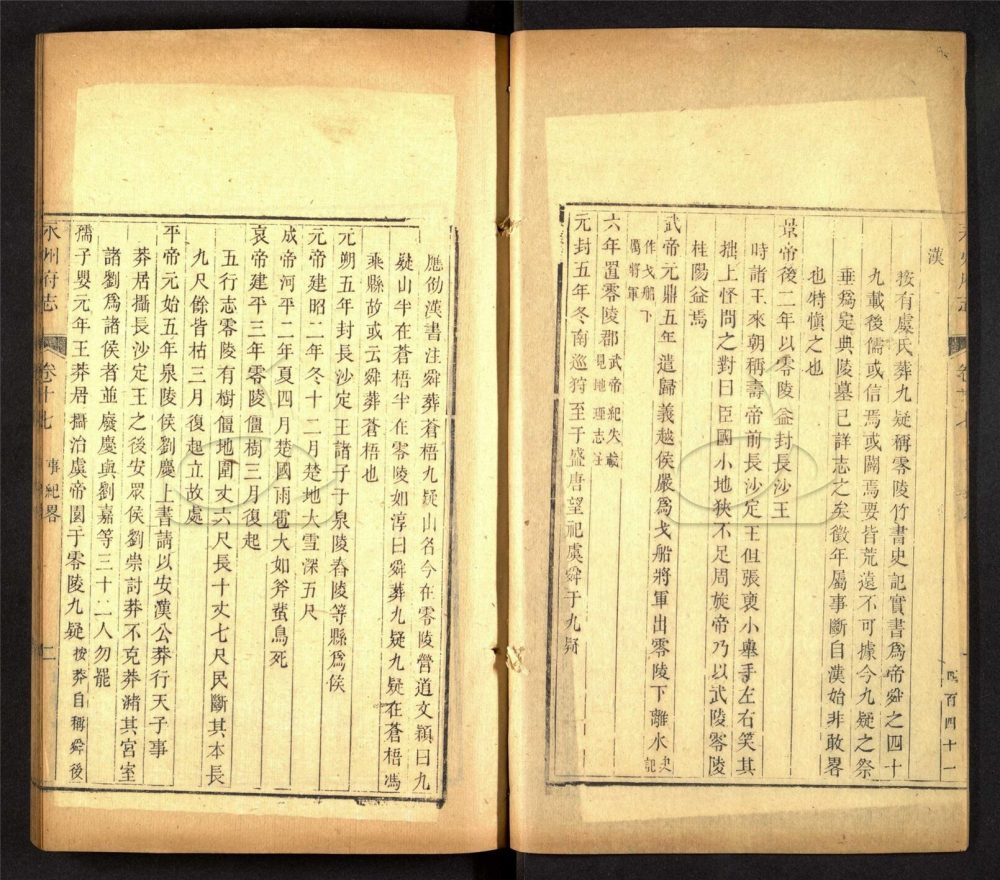 漢
按有虞氏葬九疑稱零陵竹書史記實書爲帝舜之四十
九載後儒或信焉或闕焉要皆荒遠不可據今九疑之祭
垂爲定典陵墓已詳志之矣徵年屬事斷自漢始非敢畧
也特愼之也
景帝後二年以零陵益封長沙王
時諸王來朝稱壽帝前長沙定王但張褏小舉手左右笑其
拙上怪問之對曰臣國小地狹不足周旋帝乃以武陵零陵
桂陽益焉
武帝元鼎五年遣歸義越侯嚴爲戈船將軍出零陵下離水史記
作戈船下
厲將軍
六年置零陵郡武帝紀失載
見地理志注
元封五年冬南巡狩至于盛唐望祀虞舜于九疑
四百四十一
應劭漢書注舜葬蒼梧九疑山名今在零陵營道文穎曰九
疑山半在蒼梧半在零陵如淳曰舜葬九疑九疑在蒼梧馮
乘縣故或云舜葬蒼梧也
元朔五年封長沙定王諸子于泉陵舂陵等縣爲侯
元帝建昭二年冬十二月楚地大雪深五尺
成帝河平二年夏四月楚國雨雹大如斧蜚鳥死
哀帝建平三年零陵僵樹三月復起
五行志零陵有樹僵地圍丈六尺長十丈七尺民斷其本長
九尺餘皆枯三月復起立故處
平帝元始五年泉陵侯劉慶上書請以安漢公莽行天子事
莽居攝長沙定王之後安眾侯劉崇討莽不克莽瀦其宮室
諸劉爲諸侯者並廢慶與劉嘉等三十二人勿罷
孺子嬰元年王莽居攝治虞帝園于零陵九疑按莽自稱舜後
永州府志
卷十七
事紀畧
二